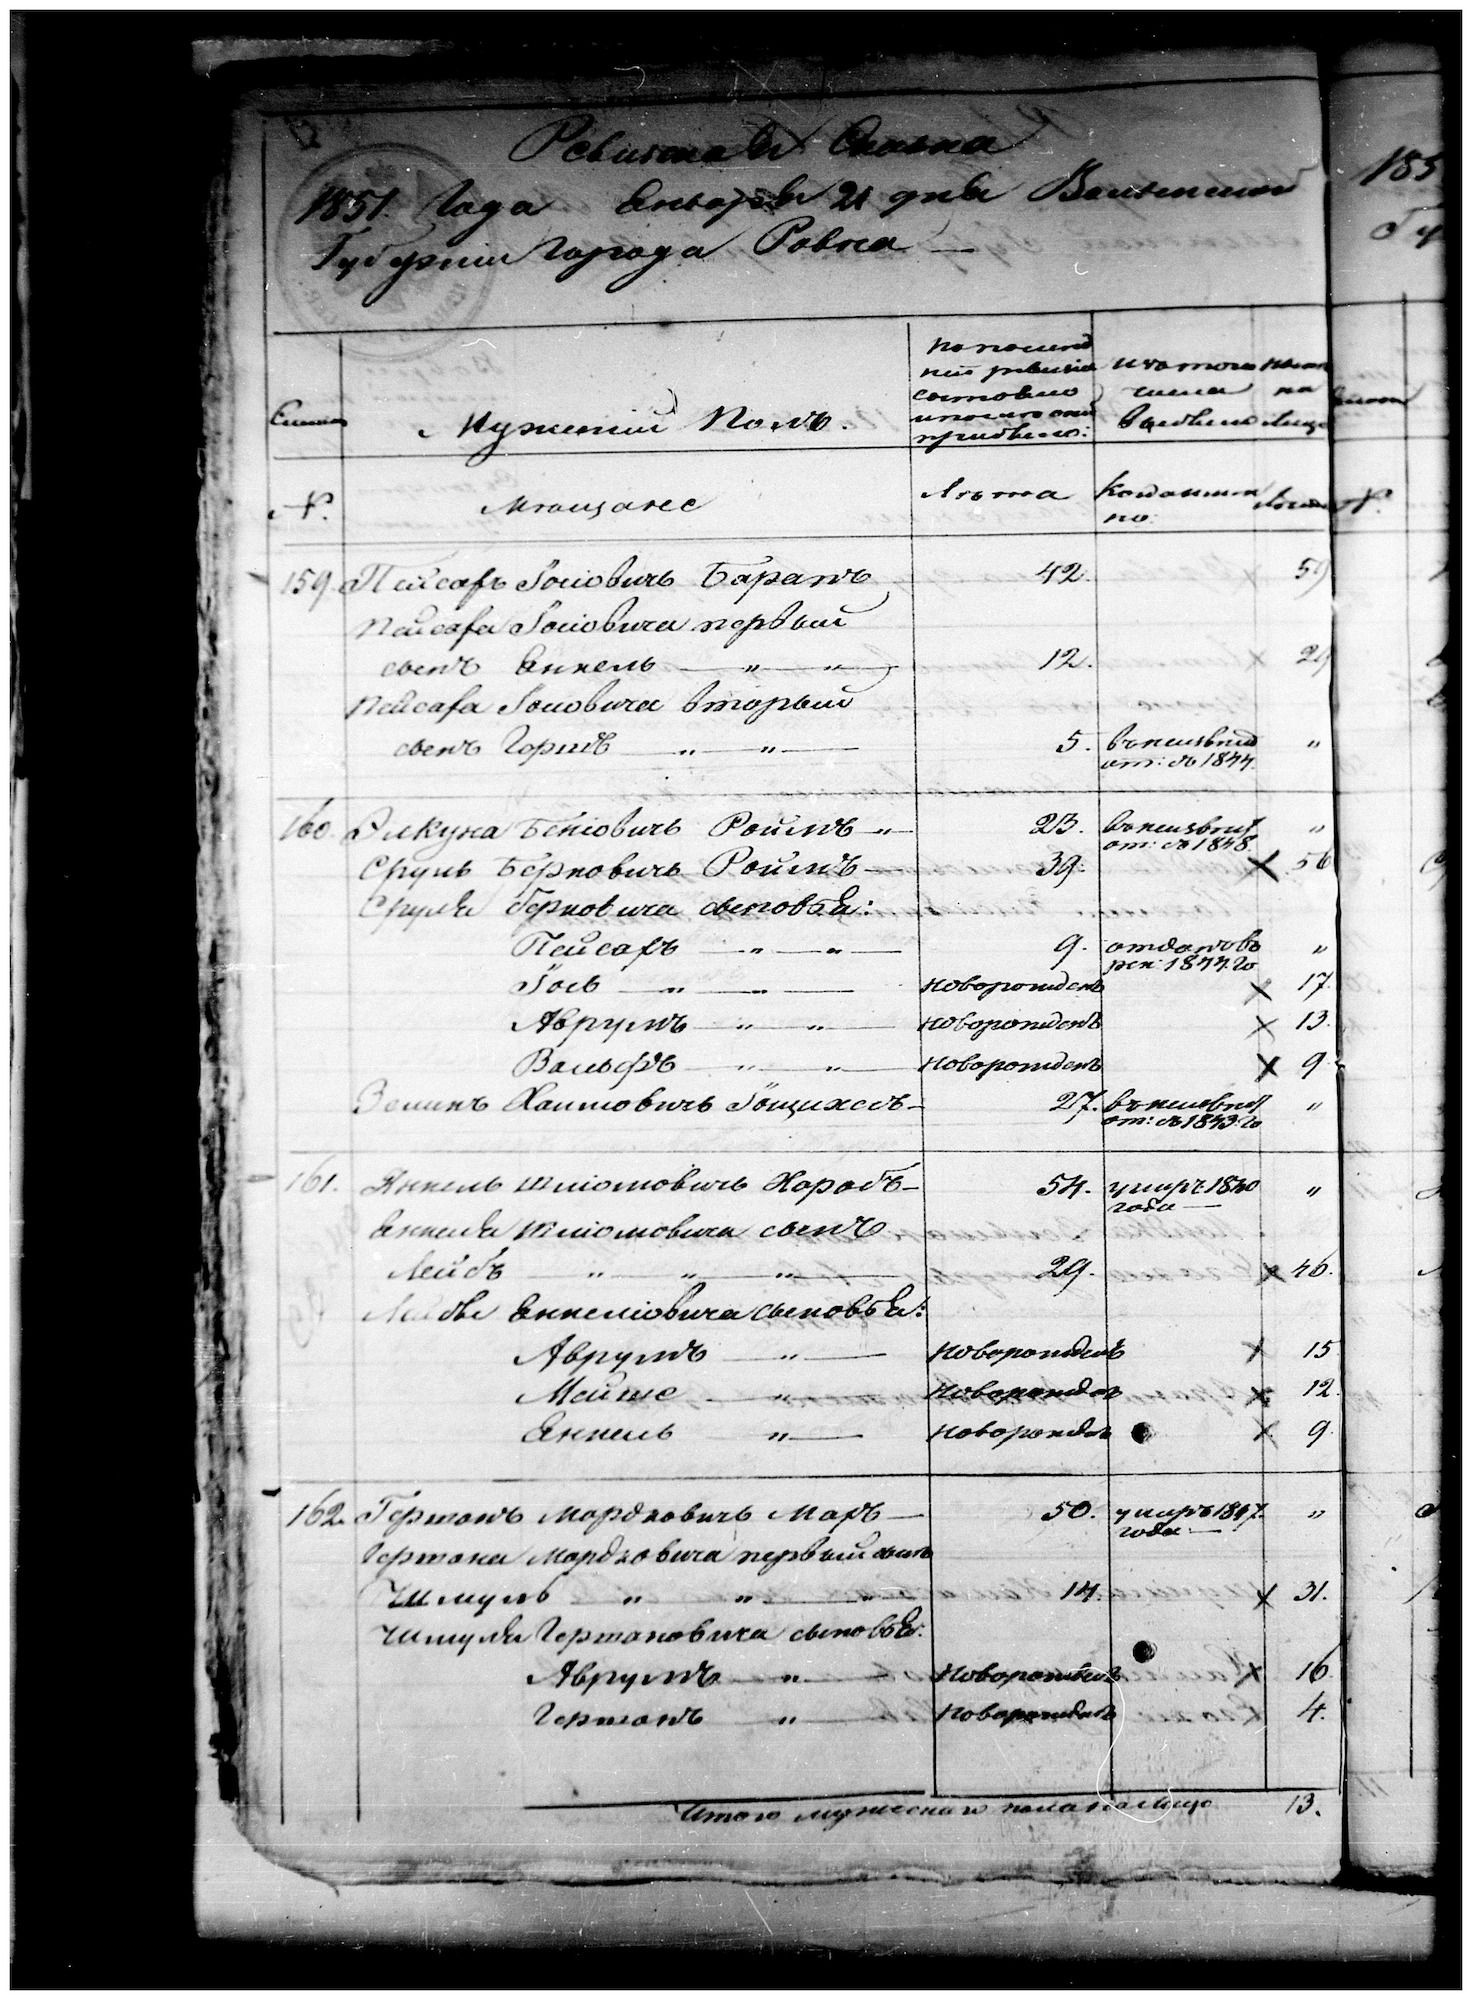 Ревизская Сказка
1851. Года Января 21 дня Волынской
Губернии Города Ровна
Семьи
Мужеский Полъ.
По послед
ней ревизіи
состояло
и после оной
прибыло:
Изъ того
числа
выбыло
ныне
на
лицо
№.
Мѣщане
Лѣта
Когда именно
но:
Лѣта
159. Пейсахъ Іосіовичъ Баратъ 42. 59
Пейсаха Іосіовича первый
сынъ Янкель — " — " — 12. 29
Пейсаха Іосіовича вторый
сынъ Горшъ — " — " — 5. въ неизвѣст
от: съ 1844. "
160. Беніовичъ Ройзъ " — 23. въ неизвѣст
от: съ 1848. "
Сруль Берковичъ Ройзъ — 39. 56
Сруля Берковича сыновья:
Пейсахъ — " — " — 9. отданъ въ
рек: 1844. го "
Іось — " — " — новорожденъ 17.
Аврумъ — " — " — новорожденъ 13.
Вольфъ — " — " — новорожденъ 9.
Зеликъ Хаимовичъ 27. въ неизвѣст
от: съ 1843. го "
161. Янкель Шліомовичъ Хорабъ — 54. умеръ 1840
года — "
Янкеля Шліомовича сынъ
Лейбъ — " — " — " — 29. 46.
Лейбы Янкеліовича сыновья:
Аврумъ — " — новорожденъ 15
Мейше — " — новорожден 12.
Янкель — " — новорожден 9.
162. Гершонъ Мордковичъ Махъ — 50. умеръ 1847.
года — "
Гершона Мордковича первый сынъ
Шмуль " — " — " — 14. 31.
Шмуля Гершоновича сыновья:
Аврумъ — " — новорожденъ 16.
Гершонъ — " — новорожденъ 4.
Итого мужескаго пола на лицо 13.
185
Гу
№.